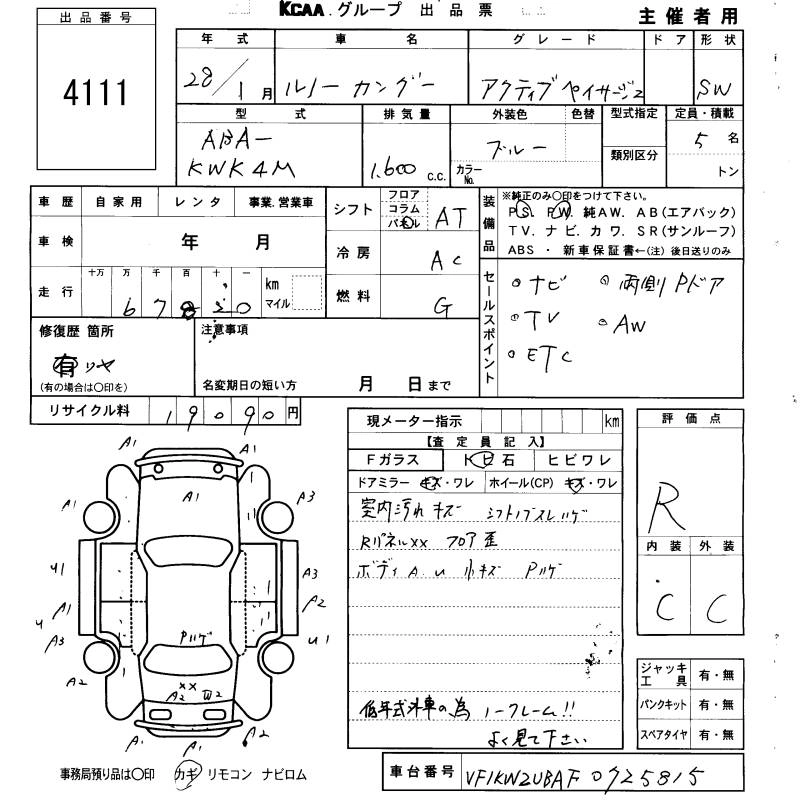 KCAA. グループ 出品票
主催者用
出品番号
4111
年式 車名 グレード ドア 形状
28/1月 ルノー カングー アクティブ ペイサージュ2 SW
型式 排気量 外装色 色替 型式指定 定員・積載
ABA-
KWK4M
1,600 c.c.
ブルー
カラーNo.
類別区分
5名
トン
車歴 自家用 レンタ 事業.営業車
車検 年 月
走行 十万 万 千 百 十 一
67820
km
マイル
シフト フロア コラム パネル AT
冷房 AC
燃料 G
装備品
※純正のみ〇印をつけて下さい。
PS. PW. 純AW. AB(エアバック)
TV. ナビ. カワ. SR(サンルーフ)
ABS ・ 新車保証書←(注) 後日送りのみ
セールスポイント
ナビ 両側Pドア
TV AW
ETC
修復歴 箇所
有 リヤ
(有の場合は〇印を)
注意事項
名変期日の短い方 月 日まで
リサイクル料 19090円
現メーター指示 km
【査定員記入】
Fガラス トビ石 ヒビワレ
ドアミラー キズ・ワレ ホイール(CP) キズ・ワレ
室内汚れキズ シフトノブスレハゲ
Rパネルxx フロア歪
ボディA.U 小キズ Pハゲ
低年式外車の為 ノークレーム!!
よく見て下さい
評価点
R
内装 外装
C C
ジャッキ工具 有・無
パンクキット 有・無
スペアタイヤ 有・無
A1 A1
A1
A1 A3
U1 A3
A1 A2
U U1
A3
Pハゲ
A2
xx
A2 W2
A1 A1 A2
事務局預り品は〇印 カギ リモコン ナビロム
車台番号 VF1KW2UBAF0725815